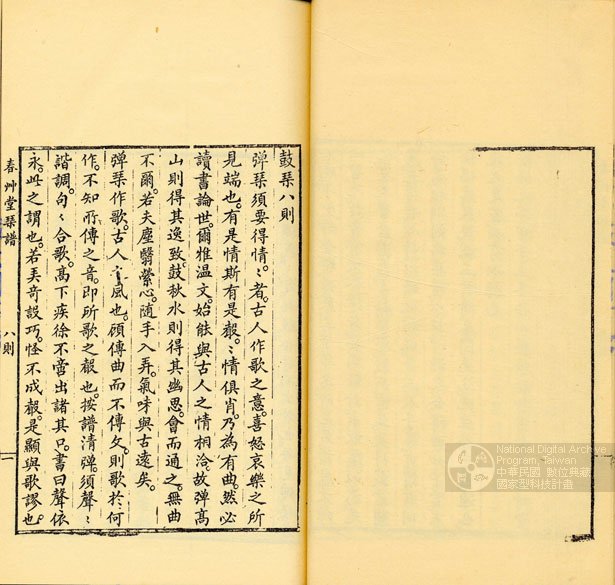 鼓琴八則
彈琴須要得情〻者。古人作歌之意。喜怒哀樂之所
見端也。有是情斯有是聲。〻情俱肖。乃為有曲。然必
讀書論世。爾雅温文。始能與古人之情相洽。故彈高
山則得其逸致。鼓秋水則得其幽思。會而通之。無曲
不爾。若夫塵翳縈心。隨手入弄。氣味與古遠矣。
彈琴作歌。古人之風也。顧傳曲而不傳文。則歌於何
作。不知所傳之音。即所歌之聲也。按譜清彈。須聲〻
諧調。句〻合歌。高下疾徐不啻出諸其口。書曰聲依
永。此之謂也。若弄奇設巧。怪不成聲。是顯與歌謬也。
春艸堂琴譜
八則
一
National Digital Archive
Program, Taiwan
中華民國 數位典藏
國家型科技計畫